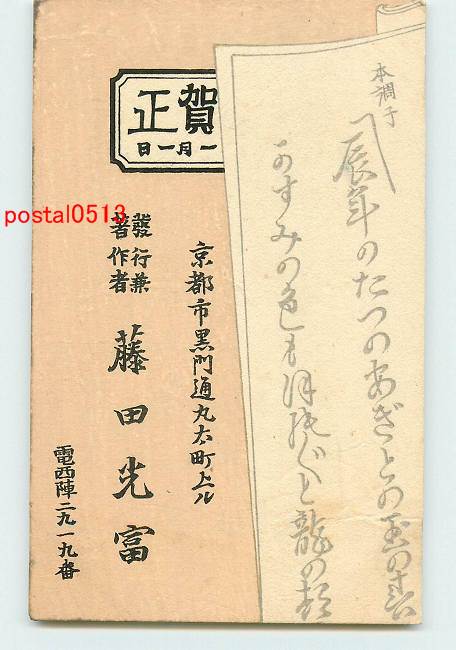 本調子
辰年のたつのあぎとの玉の
かすみの色もほのぐと龍の
賀正
一月一日
京都市黒門通丸太町上ル
發行兼
著作者
藤田光富
電西陣二九一九番
postal0513